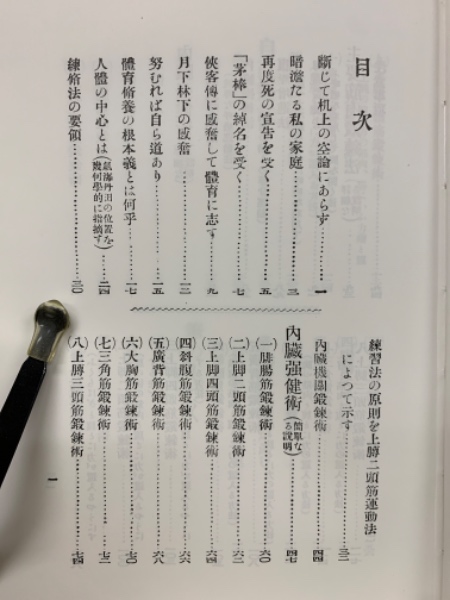 目次
斷じて机上の空論にあらず……………一
暗澹たる私の家庭……………三
再度死の宣告を受く……………五
「茅棒」の綽名を受く……………七
俠客傳に感奮して體育に志す……………九
月下林下の感奮……………一二
努むれば自ら道あり……………一五
體育脩養の根本義とは何乎……………一七
人體の中心とは(氣海丹田の位置を幾何學的に指摘す)……………二四
練脩法の要領……………三〇
練習法の原則を上膊二頭筋運動法
によつて示す……………三二
內臟機關鍛鍊術……………四四
內臟强健術(簡單なる說明)……………四七
(一)腓腸筋鍛鍊術……………六〇
(二)上脚二頭筋鍛鍊術……………六二
(三)上脚四頭筋鍛鍊術……………六四
(四)斜腹筋鍛鍊術……………六六
(五)廣背筋鍛鍊術……………六八
(六)大胸筋鍛鍊術……………七〇
(七)三角筋鍛鍊術……………七二
(八)上膊三頭筋鍛鍊術……………七四
一